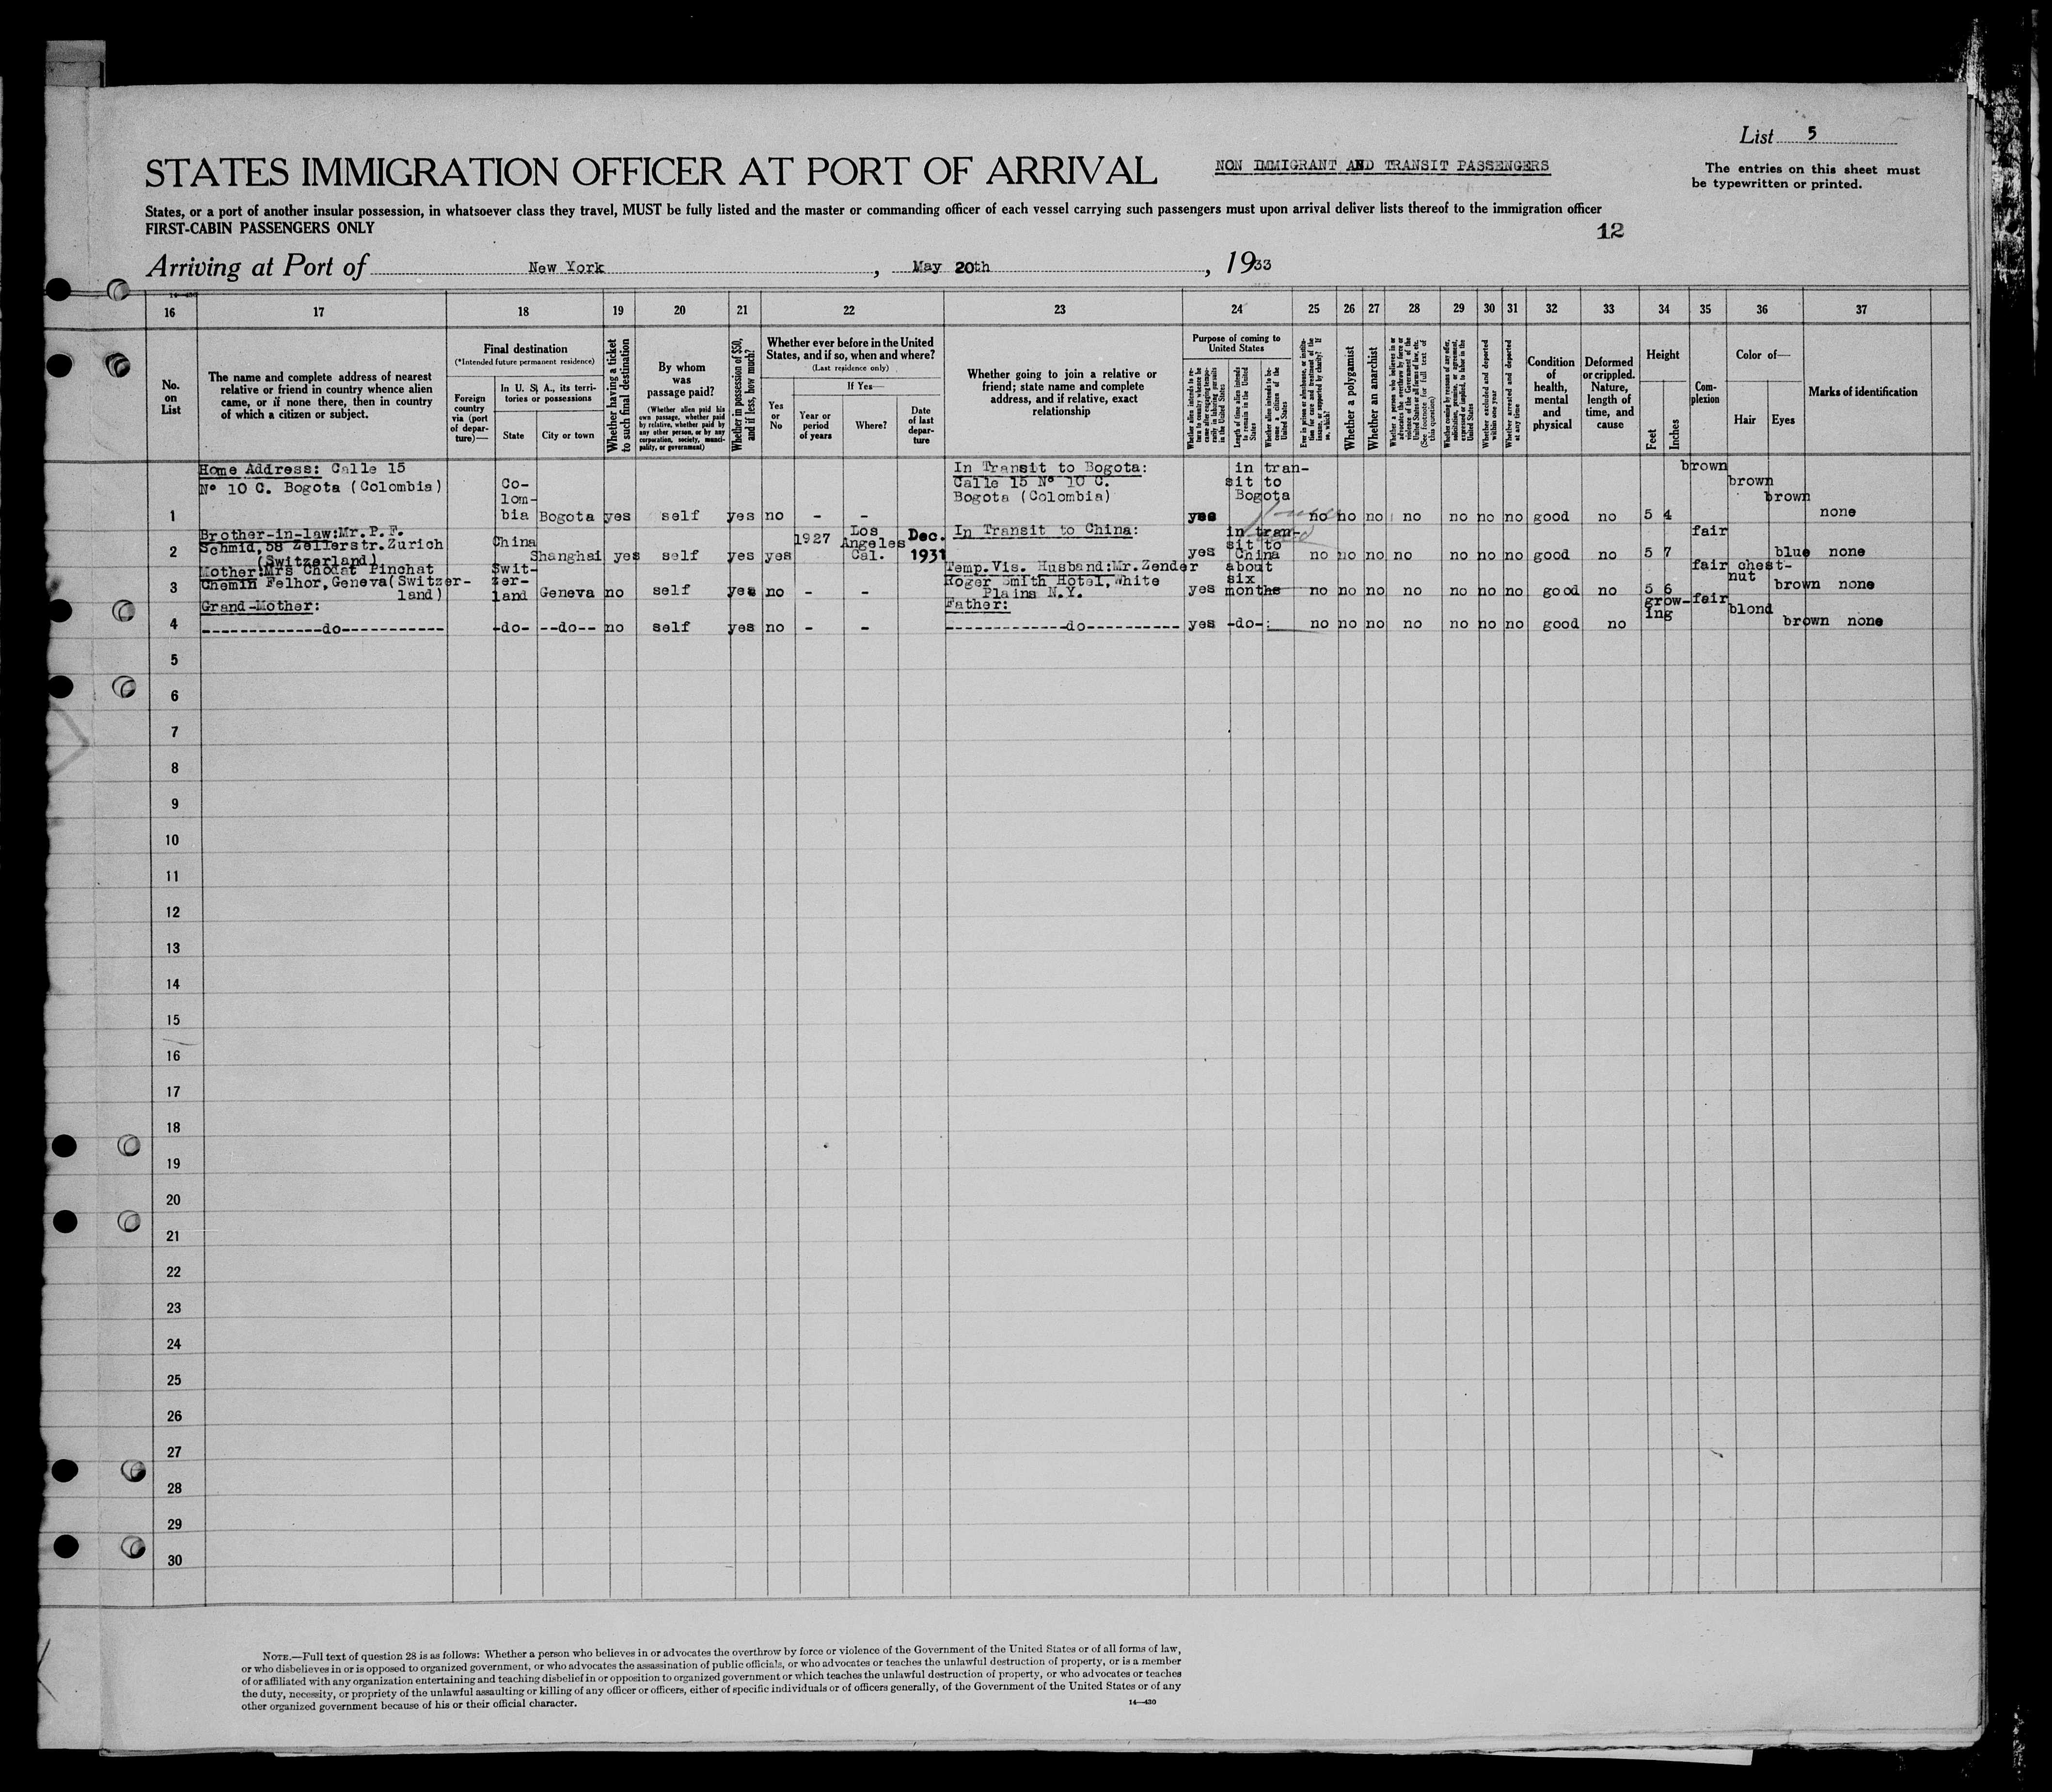 List 5
STATES IMMIGRATION OFFICER AT PORT OF ARRIVAL
NON IMMIGRANT AND TRANSIT PASSENGERS
The entries on this sheet must
be typewritten or printed.
States, or a port of another insular possession, in whatsoever class they travel, MUST be fully listed and the master or commanding officer of each vessel carrying such passengers must upon arrival deliver lists thereof to the immigration officer
FIRST-CABIN PASSENGERS ONLY
12
Arriving at Port of New York, May 20th, 1933
16 17 18 19 20 21 22 23 24 25 26 27 28 29 30 31 32 33 34 35 36 37
No.
on
List
The name and complete address of nearest
relative or friend in country whence alien
came, or if none there, then in country
of which a citizen or subject.
Final destination
(*Intended future permanent residence)
Foreign
country
via (port
of depar-
ture)—
In U. S. A., its terri-
tories or possessions
State
City or town
Whether having a ticket
to such final destination
By whom
was
passage paid?
(Whether alien paid his
own passage, whether paid
by relative, whether paid by
any other person, or by any
corporation, society, munici-
pality, or government)
Whether in possession of $50,
and if less, how much?
Whether ever before in the United
States, and if so, when and where?
(Last residence only)
Yes
or
No
If Yes—
Year or
period
of years
Where?
Date
of last
depar-
ture
Whether going to join a relative or
friend; state name and complete
address, and if relative, exact
relationship
Purpose of coming to
United States
Whether alien intends to re-
turn to country whence he
came after engaging tempo-
rarily in laboring pursuits
in the United States
Length of time alien intends
to remain in the United
States
Whether alien intends to be-
come a citizen of the
United States
Ever in prison or almshouse, or institu-
tion for care and treatment of the
insane, or supported by charity? If
so, which?
Whether a polygamist
Whether an anarchist
Whether a person who believes in or
advocates the overthrow by force or
violence of the Government of the
United States or all forms of law, etc.
(See footnote for full text of
this question)
Whether coming by reason of any offer,
solicitation, promise, or agreement,
expressed or implied, to labor in the
United States
Whether excluded and deported
within one year
Whether arrested and deported
at any time
Condition
of
health,
mental
and
physical
Deformed
or crippled.
Nature,
length of
time, and
cause
Height
Feet
Inches
Com-
plexion
Color of—
Hair
Eyes
Marks of identification
1
Home Address: Calle 15
Nº 10 C. Bogota (Colombia)
Co-
lom-
bia
Bogota yes self yes no - -
In Transit to Bogota:
Calle 15 Nº 10 C.
Bogota (Colombia)
yes
in tran-
sit to
Bogota
no no no no no no no good no 5 4 brown brown brown none
2
Brother-in-law:Mr.P.F.
Schmid,58 Zellerstr.Zurich
(Switzerland)
China
Shanghai yes self yes yes 1927
Los
Angeles
Cal.
Dec.
1931
In Transit to China:
yes
in tran-
sit to
China
no no no no no no no good no 5 7 fair blue none
3
Mother:Mrs Chodat Pinchat
Chemin Felhor,Geneva(Switzer-
land)
Swit-
zer-
land
Geneva no self yes no - -
Temp.Vis. Husband:Mr.Zender
Roger Smith Hotel,White
Plains N.Y.
yes
about
six
months
no no no no no no no good no 5 6 fair chest-
nut
brown none
4
Grand-Mother:
-------------do-----------
-do- --do-- no self yes no - -
Father:
-------------do----------
yes -do-:
no no no no no no no good no
grow-
ing
fair blond brown none
5
6
7
8
9
10
11
12
13
14
15
16
17
18
19
20
21
22
23
24
25
26
27
28
29
30
NOTE.—Full text of question 28 is as follows: Whether a person who believes in or advocates the overthrow by force or violence of the Government of the United States or of all forms of law,
or who disbelieves in or is opposed to organized government, or who advocates the assassination of public officials, or who advocates or teaches the unlawful destruction of property, or is a member
of or affiliated with any organization entertaining and teaching disbelief in or opposition to organized government or which teaches the unlawful destruction of property, or who advocates or teaches
the duty, necessity, or propriety of the unlawful assaulting or killing of any officer or officers, either of specific individuals or of officers generally, of the Government of the United States or of any
other organized government because of his or their official character.
14—430